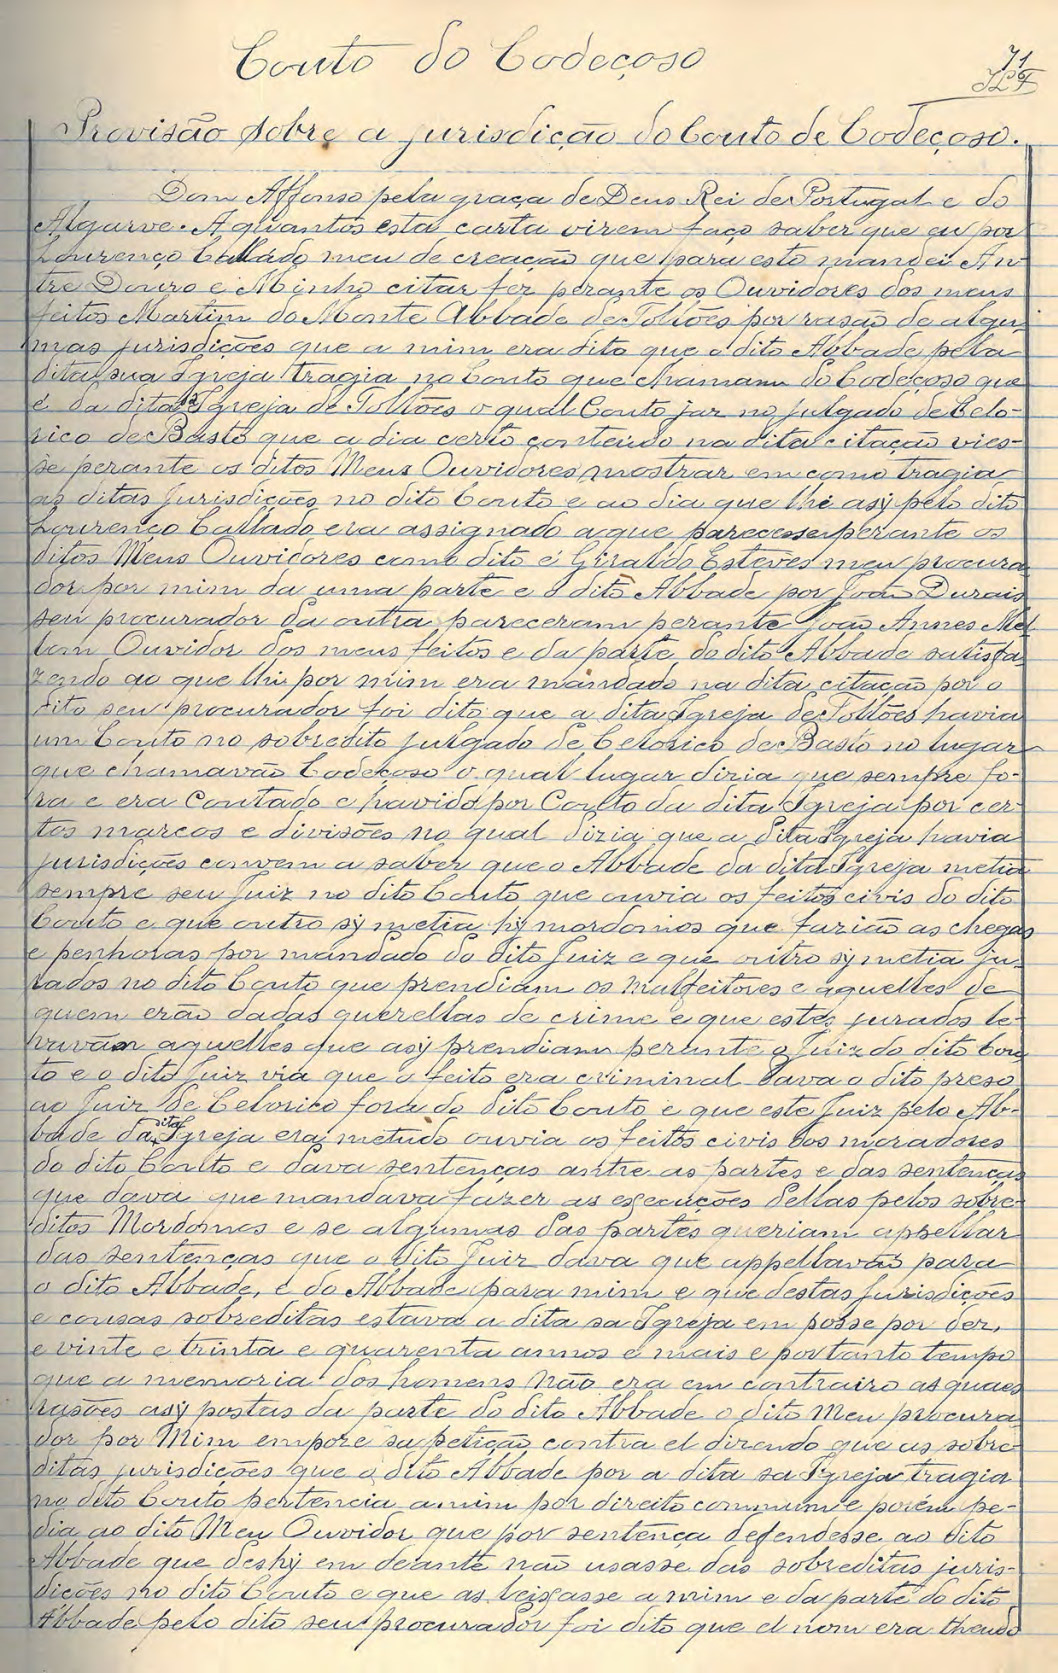 Couto do Codeçoso
71
Provisão sobre a jurisdição do Couto de Codeçoso.
Dom Affonso pela graça de Deus Rei de Portugal e do
Algarve. A quantos esta carta virem faço saber que eu por
Lourenço Callado meu de creação que para esto mandei An-
tre Douro e Minho citar fez perante os Ouvidores dos meus
feitos Martim do Monte Abbade de Tollões por rasão de algu-
mas jurisdições que a mim era dito que o dito Abbade pela
dita sua Igreja tragia no Couto que chamam do Codeçoso que
é da dita sa Igreja de Tollões o qual Couto jaz no julgado de Celo-
rico de Basto que a dia certo conteudo na dita citação vies-
se perante os ditos Meus Ouvidores mostrar em como tragia
as ditas jurisdições no dito Couto e ao dia que lhi asÿ pelo dito
Lourenço Callado era assignado a que parecesse perante os
ditos Meus Ouvidores como dito é Giraldo Esteves meu procura
dor por mim da uma parte e o dito Abbade por João Durais
seu procurador da outra pareceram perante João Annes Mel
lom Ouvidor dos meus feitos e da parte do dito Abbade satisfa
zendo ao que lhi por mim era mandado na dita citação por o
dito seu procurador foi dito que a dita Igreja de Tollões havia
um Couto no sobredito julgado de Celorico de Basto no lugar
que chamavão Codeçoso o qual lugar dizia que sempre fo-
ra e era Contado e havido por Couto da dita Igreja por cer-
tos marcos e divisões no qual dizia que a dita Igreja havia
jurisdições convem a saber que o Abbade da dita Igreja metia
sempre seu Juiz no dito Couto que ouvia os feitos civis do dito
Couto e que outro sÿ metia hÿ mordomos que fazião as chegas
e penhoras por mandado do dito Juiz e que outro sÿ metia ju-
rados no dito Couto que prendiam os malfeitores e aquelles de
quem erão dadas querellas de crime e que estes jurados le-
vavam aquelles que asÿ prendiam perante o Juiz do dito Cou
to e o dito Juiz via que o feito era criminal dava o dito preso
ao Juiz de Celorico fora do dito Couto e que este Juiz pelo Ab-
bade da dita Igreja era metudo ouvia os feitos civis dos moradores
do dito Couto e dava sentenças antre as partes e das sentenças
que dava que mandava fazer as execuções dellas pelos sobre
ditos Mordomos e se algumas das partes queriam appellar
das sentenças que o dito Juiz dava que appellavão para
o dito Abbade, e do Abbade para mim e que destas jurisdições
e cousas sobreditas estava a dita sa Igreja em posse por dez,
e vinte e trinta e quarenta annos e mais e por tanto tempo
que a memoria dos homens não era em contrairo as quaes
rasões asÿ postas da parte do dito Abbade o dito Meu procura
dor por Mim empore sa petição contra el dizendo que as sobre
ditas jurisdições que o dito Abbade por a dita sa Igreja tragia
no dito Couto pertencia a mim por direito commum e porém pe-
dia ao dito Meu Ouvidor que por sentença defendesse ao dito
Abbade que deshÿ em deante não usasse das sobreditas juris-
dições no dito Couto e que as leixasse a mim e da parte do dito
Abbade pelo dito seu procurador foi dito que el nom era theudo